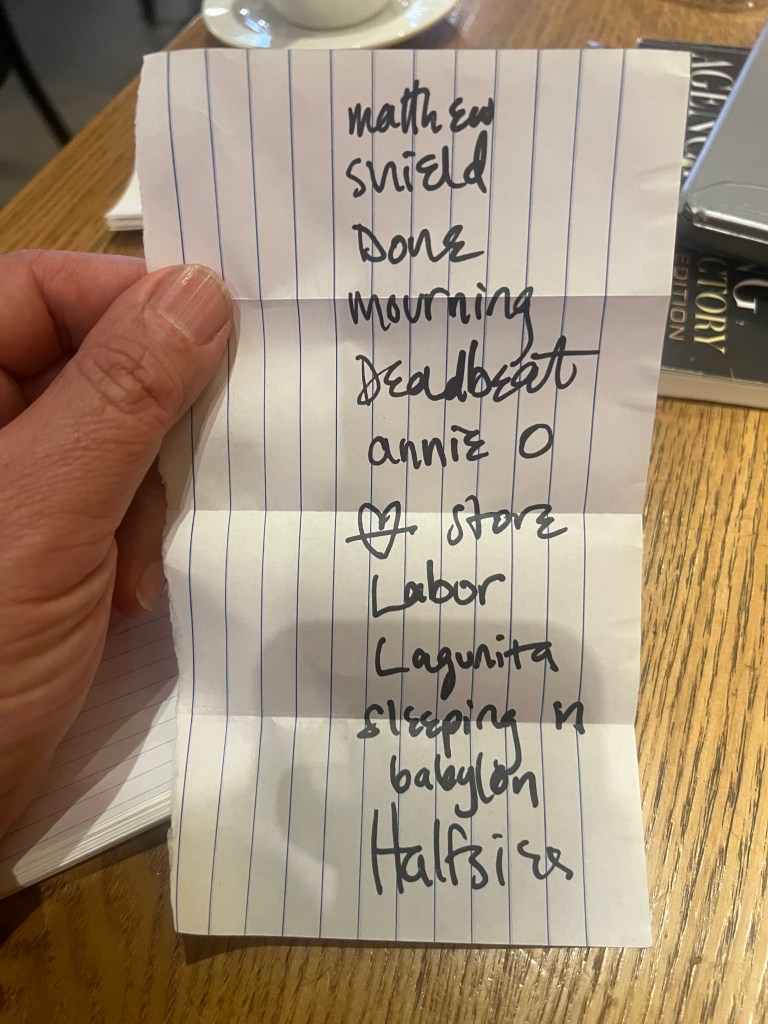 matthew
shield
Done
mourning
Deadbeat
annie O
♡ store
Labor
Lagunita
sleeping in
babylon
Halfsies
AGENC
NG
CTORY
EDITION